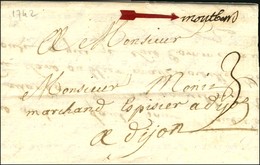 1742
montbard
A Monsieur
Monsieur Monin
marchand Epissier a dijon
a dijon
3